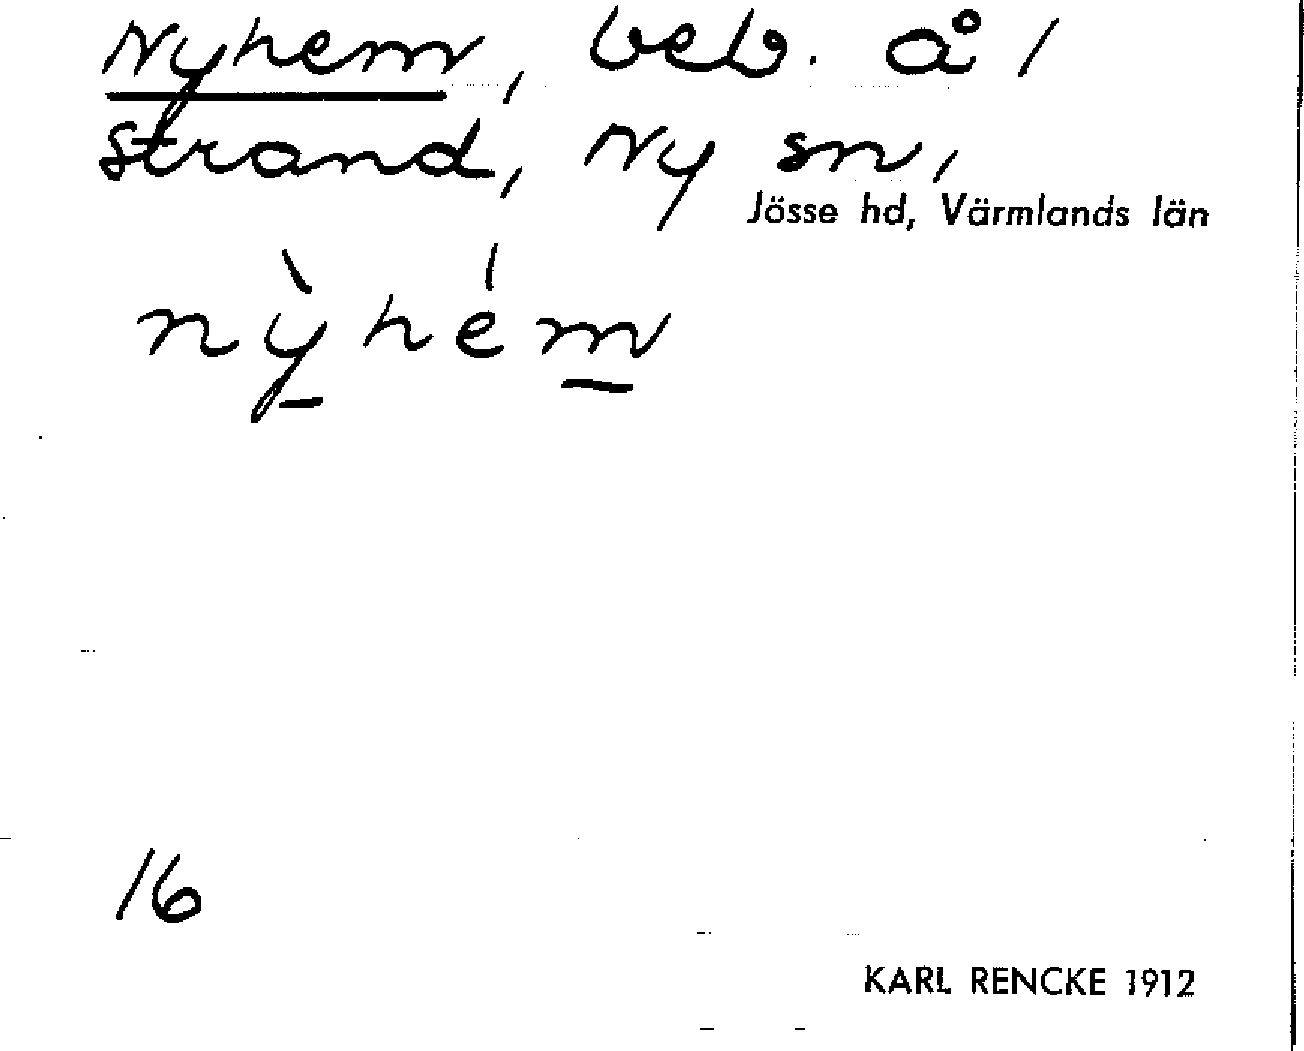 Nyhem, beb. å 1
Strand, Ny sn,
Jösse hd, Värmlands län
nỳhém
16
KARL RENCKE 1912